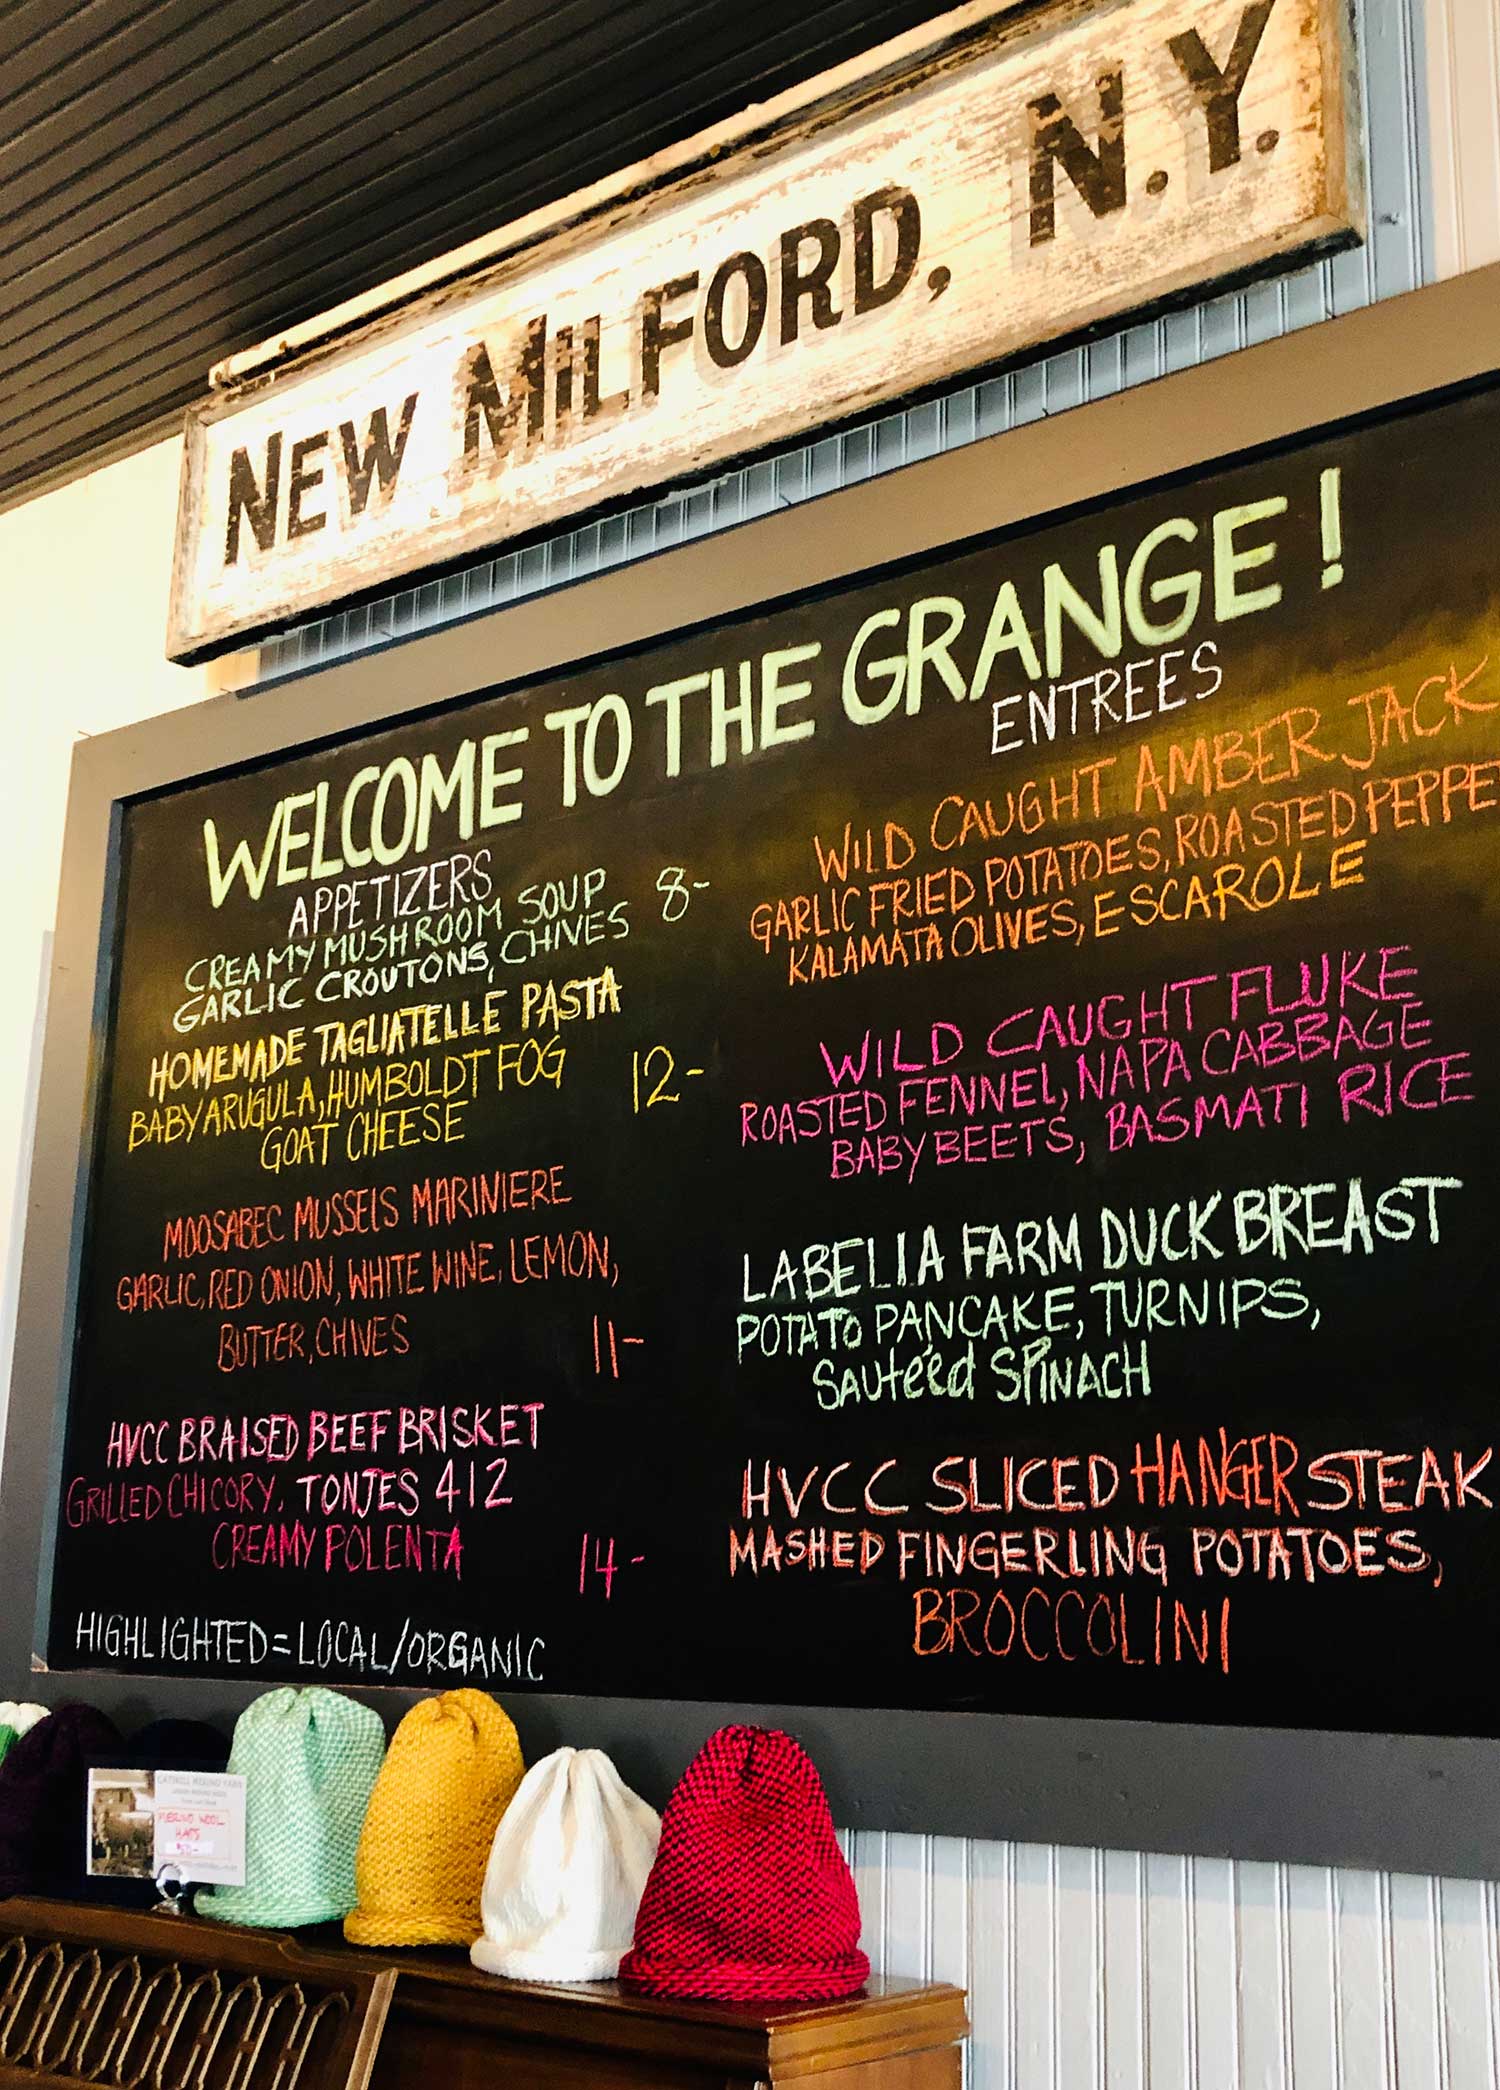 NEW MILFORD, N.Y.
WELCOME TO THE GRANGE!
APPETIZERS
CREAMY MUSHROOM SOUP
GARLIC CROUTONS, CHIVES 8-
HOMEMADE TAGLIATELLE PASTA
BABY ARUGULA, HUMBOLDT FOG 12-
GOAT CHEESE
MOOSABEC MUSSELS MARINIERE
GARLIC, RED ONION, WHITE WINE, LEMON,
BUTTER, CHIVES 11-
HVCC BRAISED BEEF BRISKET
GRILLED CHICORY, TONJES 412
CREAMY POLENTA 14-
HIGHLIGHTED = LOCAL/ORGANIC
ENTREES
WILD CAUGHT AMBER JACK
GARLIC FRIED POTATOES, ROASTED PEPPE
KALAMATA OLIVES, ESCAROLE
WILD CAUGHT FLUKE
ROASTED FENNEL, NAPA CABBAGE
BABY BEETS, BASMATI RICE
LABELLA FARM DUCK BREAST
POTATO PANCAKE, TURNIPS,
SAUTeed SPINACH
HVCC SLICED HANGER STEAK
MASHED FINGERLING POTATOES,
BROCCOLINI
CATSKILL MERINO YARN
MERINO WOOL
HATS